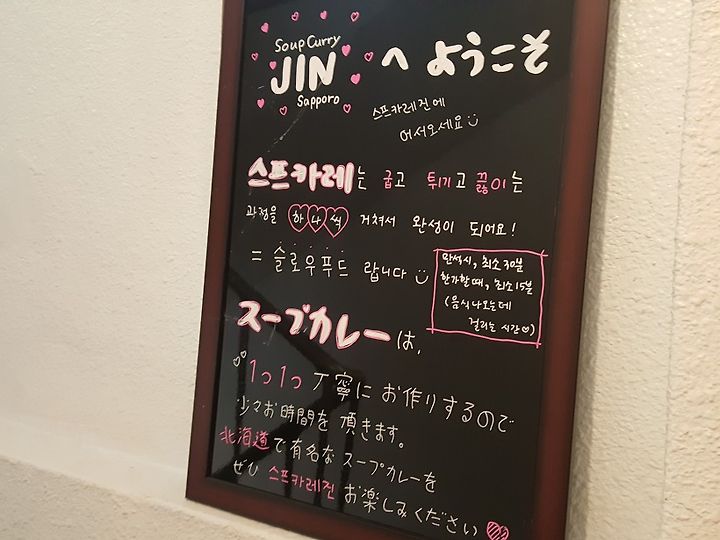 Soup Curry
JIN
Sapporo
へ ようこそ
스프카레진에
어서오세요
스프카레는 굽고 튀기고 끓이는
과정을 하나씩 거쳐서 완성이 되어요!
= 슬로우푸드 랍니다
만석시, 최소 30분
한가할때, 최소 15분
(음식나오는데
걸리는 시간♡)
スープカレーは、
1つ1つ丁寧にお作りするので
少々お時間を頂きます。
北海道で有名なスープカレーを
ぜひ 스프카레진 お楽しみください